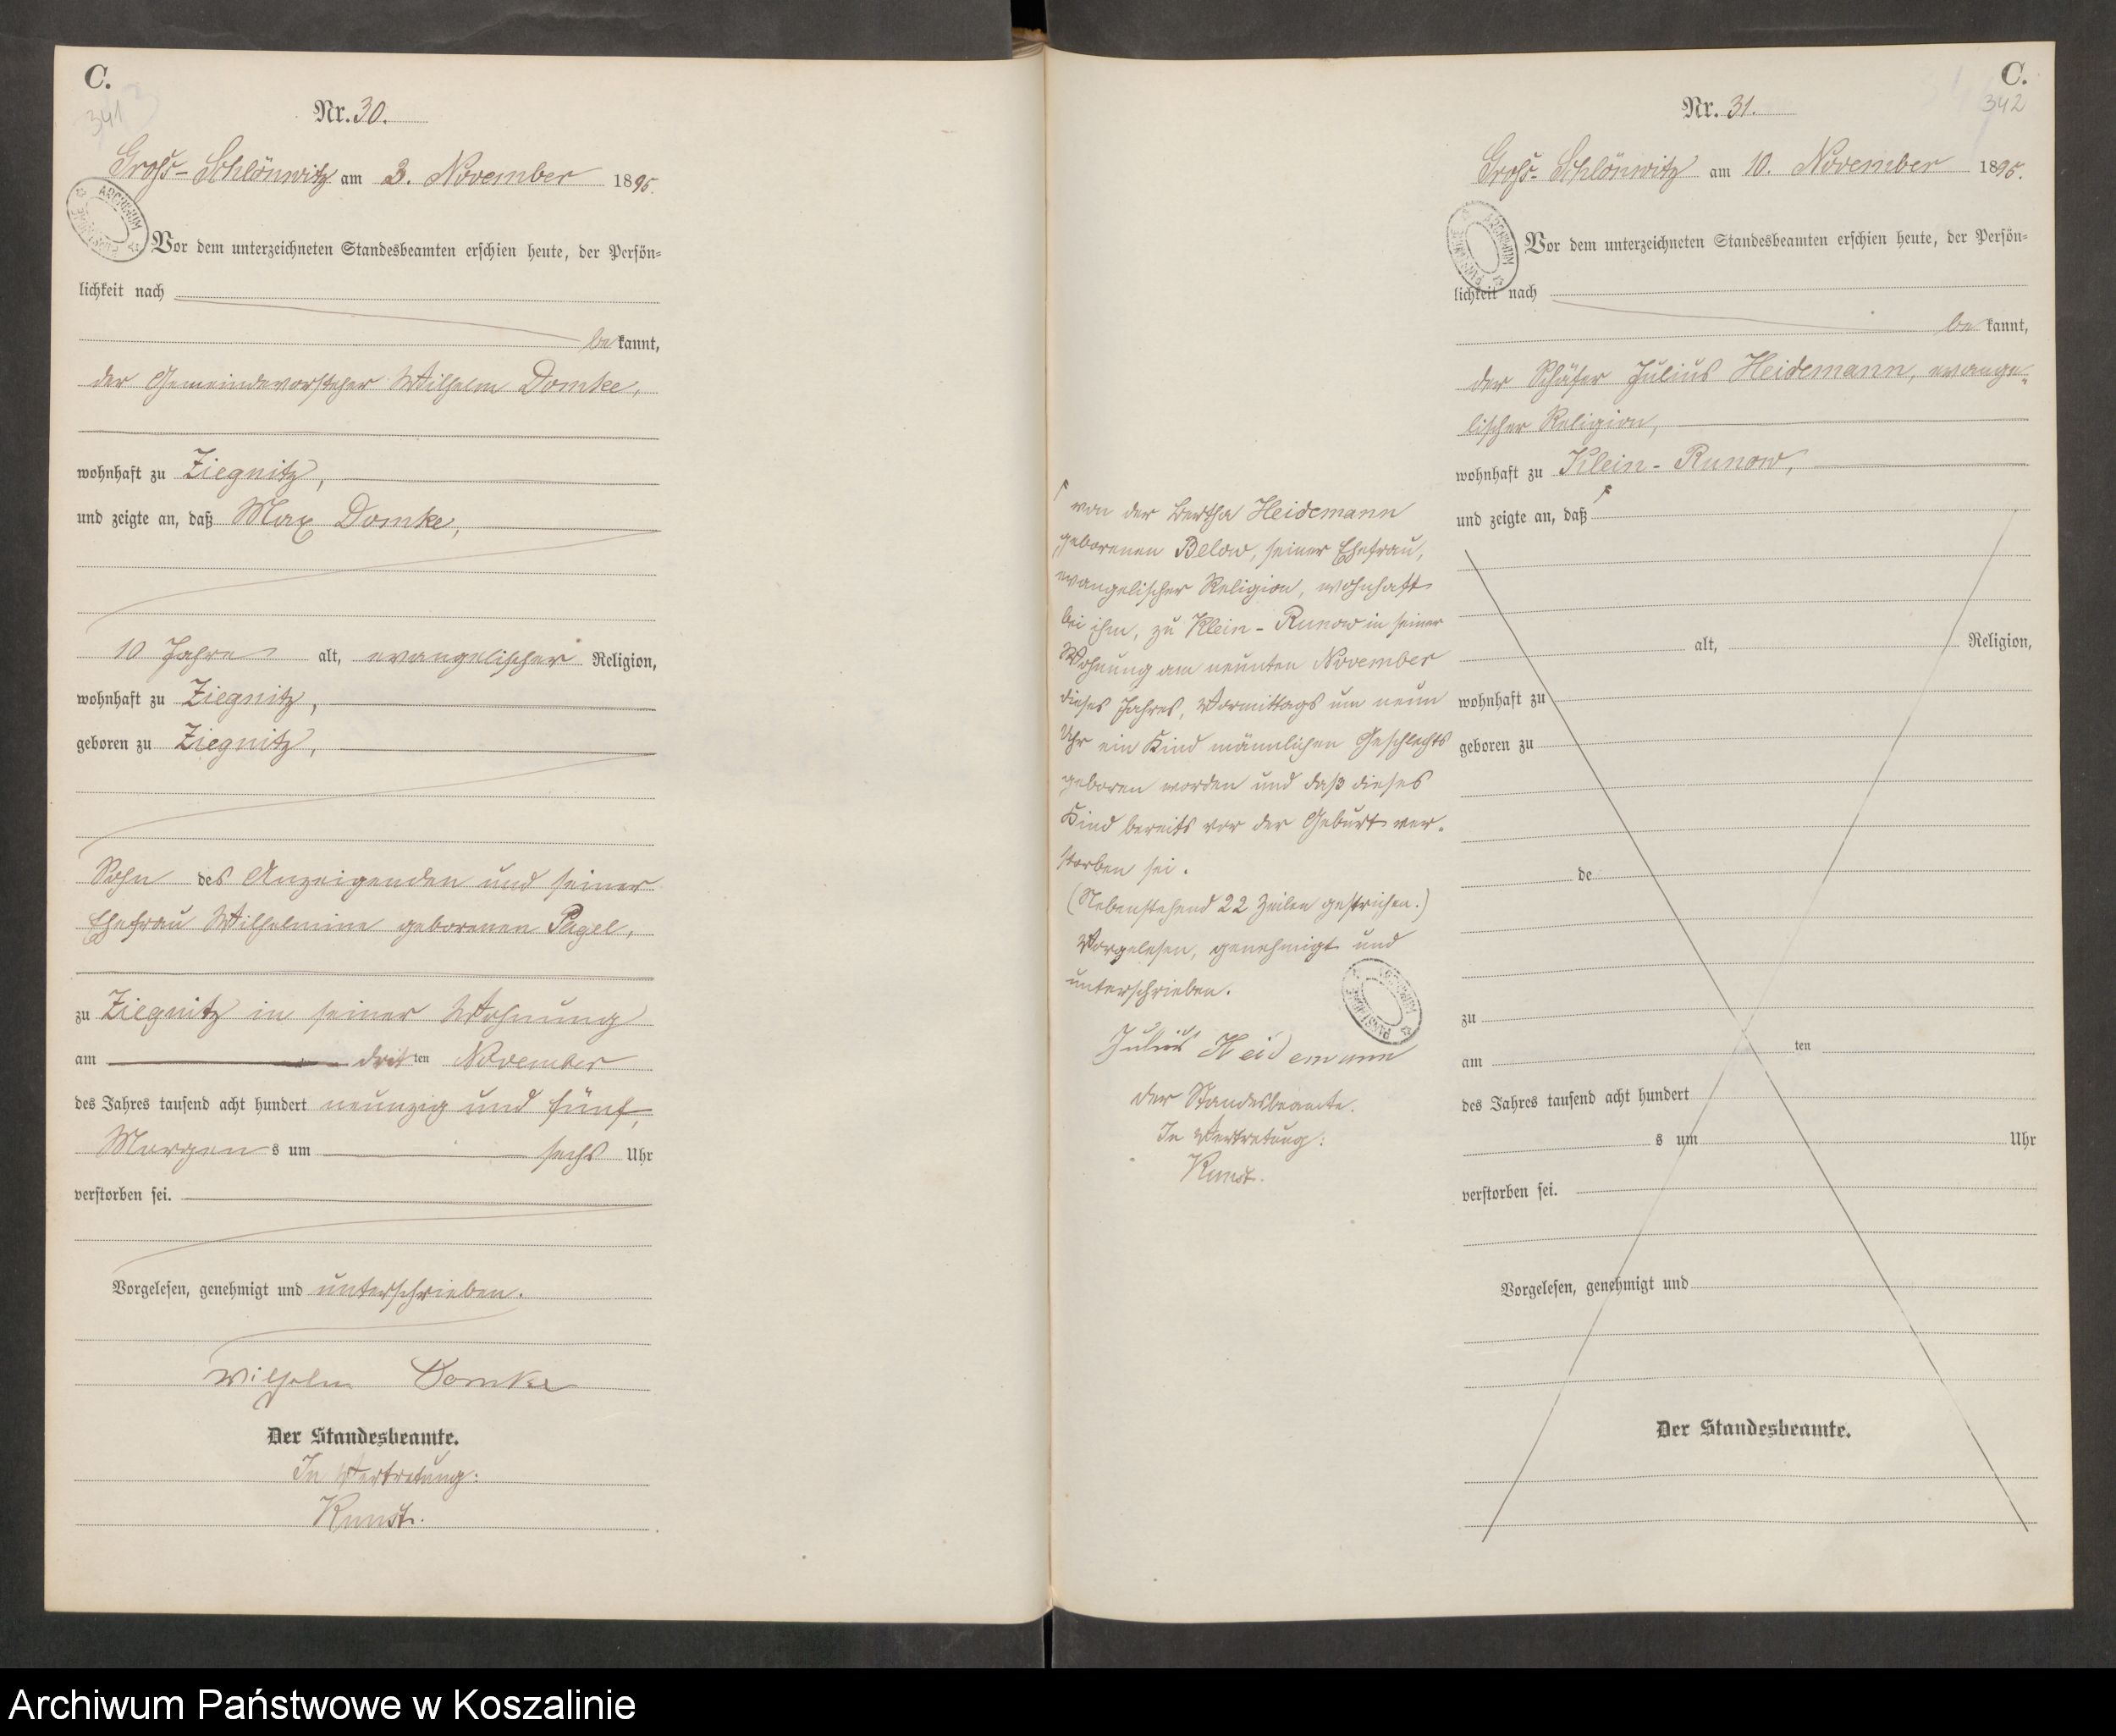 C.
341
Nr. 30.
Groß-Schlönwitz am 3. November 1895.
ARCHIWUM PAŃSTWOWE
Vor dem unterzeichneten Standesbeamten erschien heute, der Persön-
lichkeit nach
bekannt,
der Gemeindevorsteher Wilhelm Domke,
wohnhaft zu Ziegnitz,
und zeigte an, daß Max Domke,
10 Jahre alt, evangelischer Religion,
wohnhaft zu Ziegnitz,
geboren zu Ziegnitz,
Sohn des Anzeigenden und seiner
Ehefrau Wilhelmine geborenen Pagel,
zu Ziegnitz in seiner Wohnung
am dritten November
des Jahres tausend acht hundert neunzig und fünf,
Morgens um sechs Uhr
verstorben sei.
Vorgelesen, genehmigt und unterschrieben.
Wilhelm Domke
Der Standesbeamte.
In Vertretung:
Kunst.
von der Bertha Heidemann
geborenen Below, seiner Ehefrau,
evangelischer Religion, wohnhaft
bei ihm, zu Klein-Runow in seiner
Wohnung am neunten November
dieses Jahres, Vormittags um neun
Uhr ein Kind männlichen Geschlechts
geboren worden und daß dieses
Kind bereits vor der Geburt ver-
storben sei.
(Nebenstehend 22 Zeilen gestrichen.)
Vorgelesen, genehmigt und
unterschrieben.
ARCHIWUM PAŃSTWOWE
Julius Heidemann
der Standesbeamte.
In Vertretung:
Kunst.
C.
342
Nr. 31.
Groß-Schlönwitz am 10. November 1895.
ARCHIWUM PAŃSTWOWE
Vor dem unterzeichneten Standesbeamten erschien heute, der Persön-
lichkeit nach
bekannt,
der Schäfer Julius Heidemann, evange-
lischer Religion,
wohnhaft zu Klein-Runow,
und zeigte an, daß
alt, Religion,
wohnhaft zu
geboren zu
de
zu
am ten
des Jahres tausend acht hundert
s um Uhr
verstorben sei.
Vorgelesen, genehmigt und
Der Standesbeamte.
Archiwum Państwowe w Koszalinie